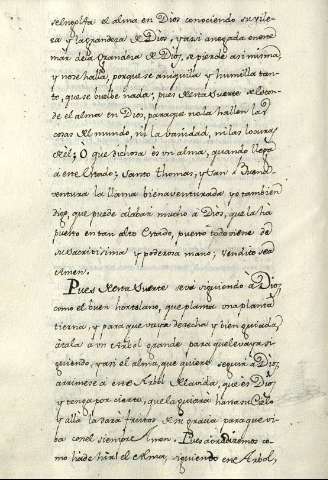 se engolfa el alma en Dios conociendo su vile
za y la grandeza de Dios, y asi anegada en ese
mar de la grandeza de Dios, se pierde asi misma,
y no se halla, porque se aniquila y humilla tan
to, que se buelbe nada; pues desta suerte se escon
de el alma en Dios, para que no la hallen las
cosas del mundo, ni la banidad, ni las locuras
del; O que dichosa es vn alma, quando llega
a este estado; Santo Thomas, y San
ventura la llama bienaventurada y o tambien
digo, que puede alabar mucho a Dios, que la ha
puesto en tan alto estado, puesto todo viene de
su sacratisima y poderosa mano; vendito sea
Amen.
Pues desta suerte se va siguiendo à Dios,
como el buen hortelano, que planta vna planta
tierna, y para que vaya derecha y bien guiada,
átala a vn Arbol grande para que le vaya si
guiendo, y asi el alma, que quiere seguir à Dios
arrimese a ese Arbol de la vida, que es Dios
y tenga por cierto, que la guiará hasta su Cielo
y alla la dará frutos de su gracia para que vi
ba con el siempre Amen. Pues aora diremos co
mo ha de hir el Alma, siguiendo ese Arbol,